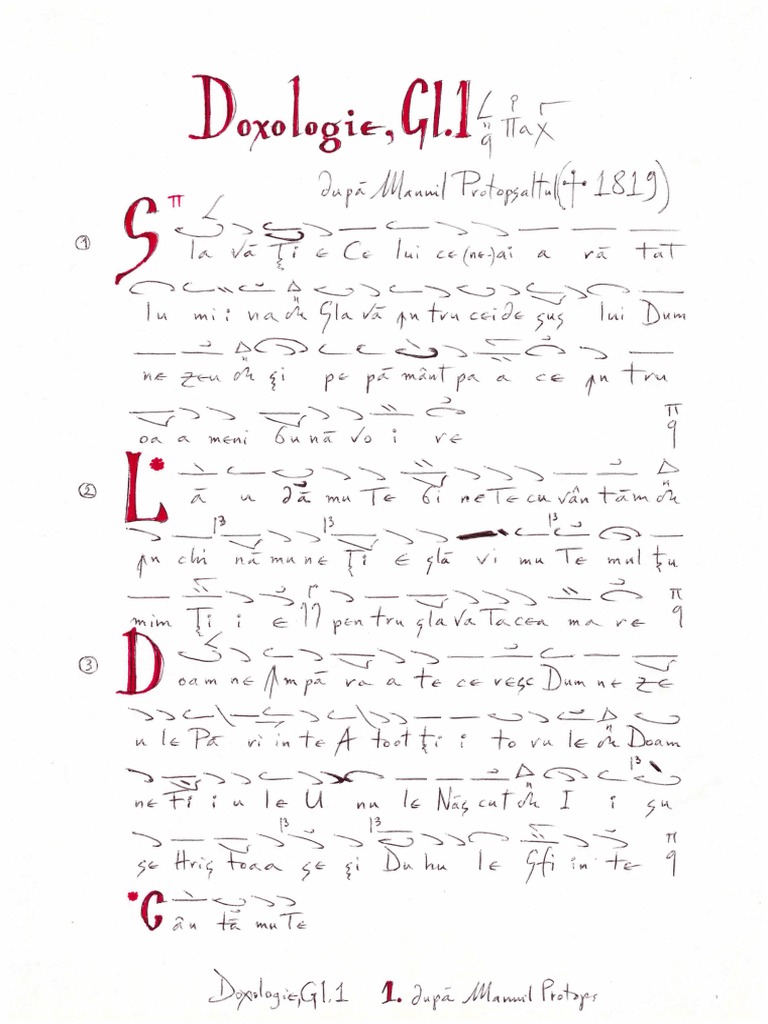 Doxologie, Gl.1 Πα
după Manuil Protopsaltul († 1819)
① Sla vă Ţi e Ce lui ce(ne-)ai a ră tat
lu mi i na Sla vă în tru cei de sus lui Dum
ne zeu şi pe pă mânt pa a ce în tru
oa a meni bu nă vo i re
② L* ă u dă mu Te bi ne Te cu vân tăm
în chi nă mu ne Ţi e slă vi mu Te mul ţu
mim Ţi i e pen tru sla va Ta cea ma re
③ Doam ne Împă ra a te ce resc Dum ne ze
u le Pă ri in te A toot ţi i to ru le Doam
ne Fi i u le U nu le Năs cut I i su
se Hris toaa se şi Du hu le Sfi in te
*Cân tă mu Te
Doxologie, Gl.1 1. după Manuil Protops